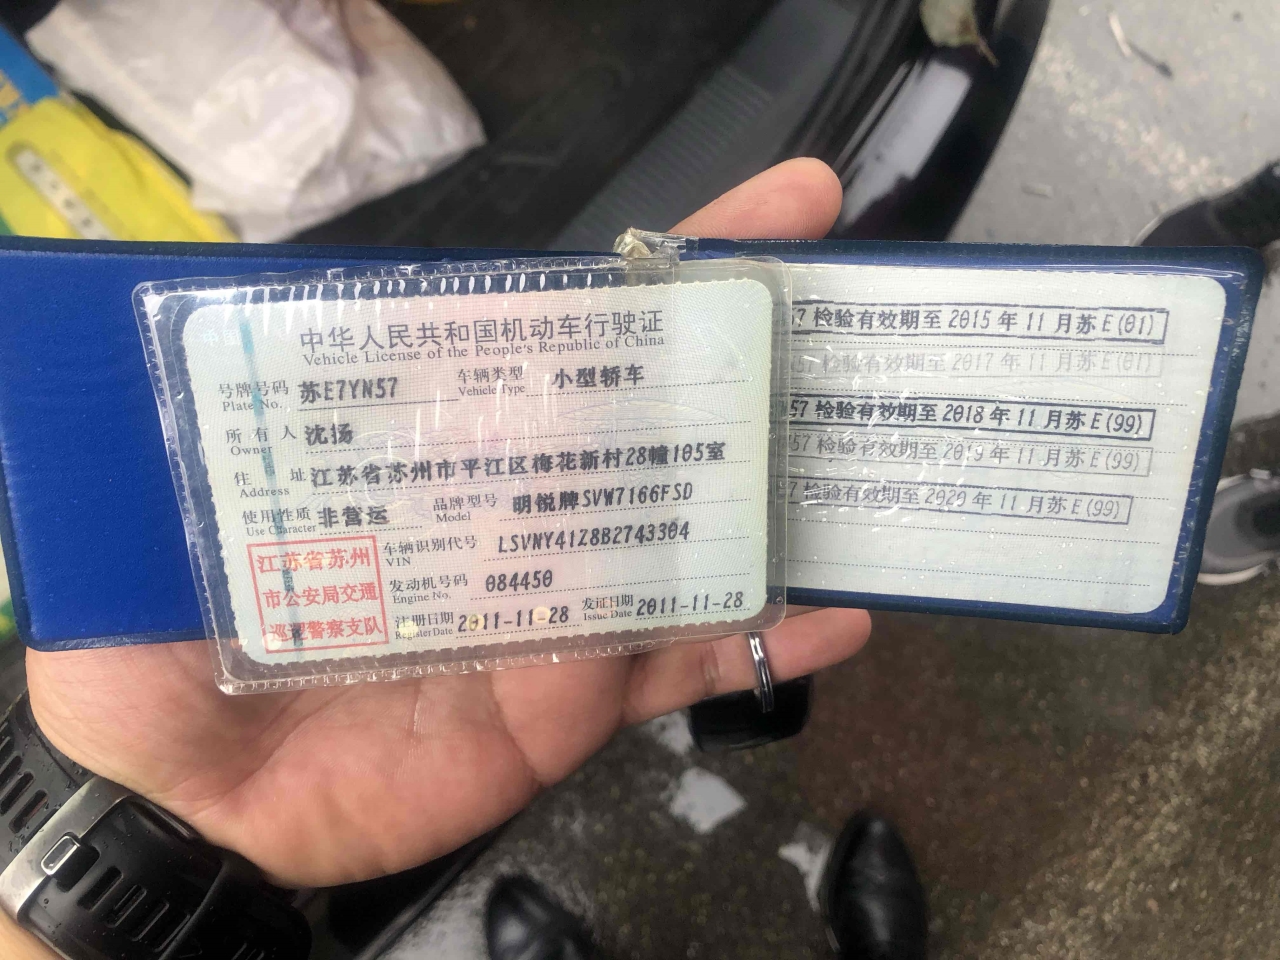 中华人民共和国机动车行驶证
Vehicle License of the People's Republic of China
号牌号码 苏E7YN57 车辆类型 小型轿车
Plate No. Vehicle Type
所有人 沈扬
Owner
住址 江苏省苏州市平江区梅花新村28幢105室
Address
使用性质 非营运 品牌型号 明锐牌SVW7166FSD
Use Character Model
江苏省苏州
市公安局交通
巡逻警察支队
车辆识别代号 LSVNY41Z8B2743304
VIN
发动机号码 084450
Engine No.
注册日期 2011-11-28 发证日期 2011-11-28
Register Date Issue Date
57 检验有效期至2015年11月苏E(01)
57 检验有效期至2017年11月苏E(01)
57 检验有效期至2018年11月苏E(99)
57 检验有效期至2019年11月苏E(99)
7 检验有效期至2020年11月苏E(99)